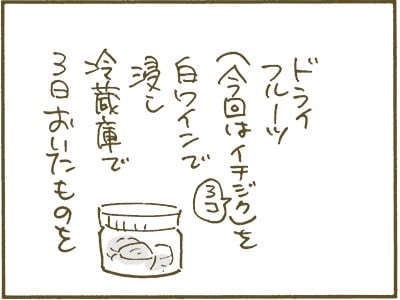 ドライ
フルーツ
(今回はイチジク)を
3コ
白ワインで
浸し
冷蔵庫で
3日おいたものを